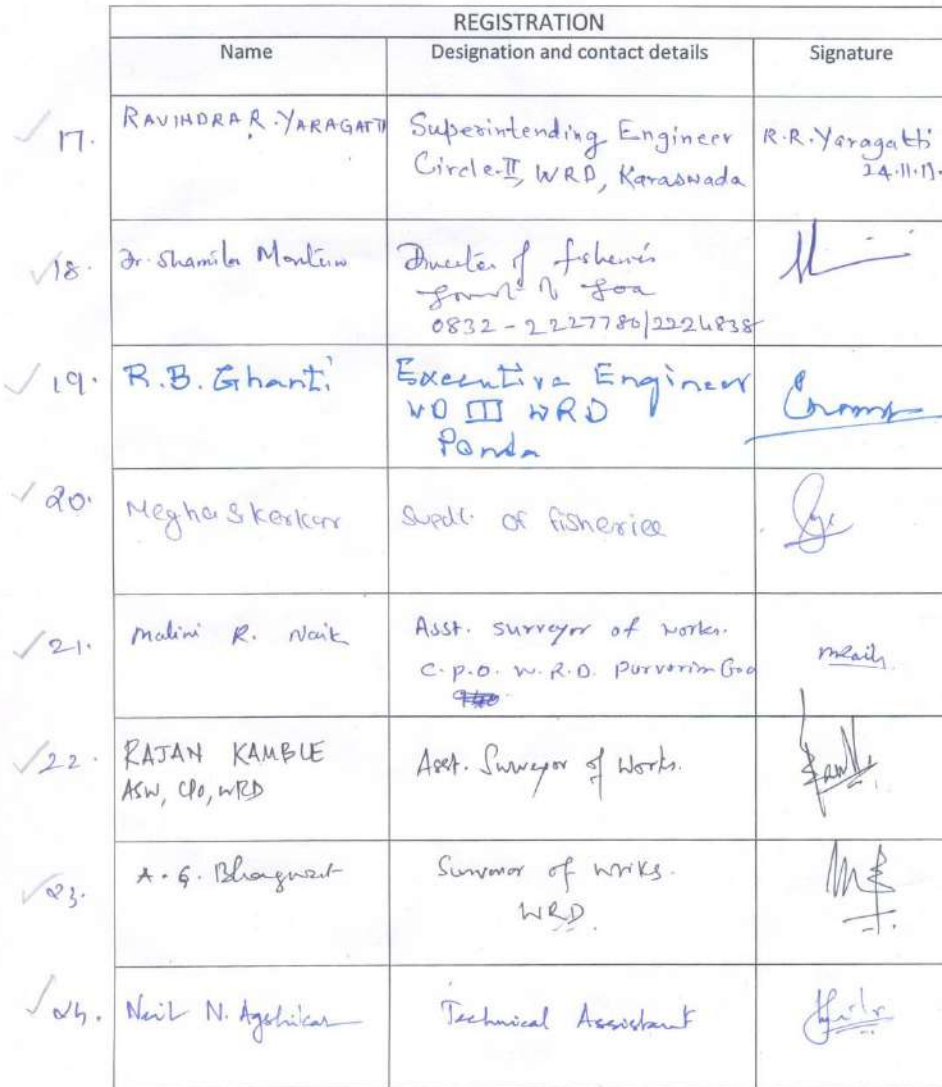 REGISTRATION
Name Designation and contact details Signature
17. RAVINDRA R. YARAGATTI Superintending Engineer R.R. Yaragatti
Circle-II, WRD, Karaswada 24.11.17.
18. Dr. Shamila Monteiro Director of fisheries
Govt of Goa
0832-2227780/2224838
19. R.B. Ghanti Executive Engineer
WD III WRD
Ponda
20. Megha S Kerkar Supdt. of fisheries
21. Malini R. Naik Asst. surveyor of works.
C.P.O. W.R.D. Porvorim Goa
22. RAJAN KAMBLE Asst. Surveyor of Works.
ASW, CPO, WRD
23. A. G. Bhagwat Surveyor of works.
WRD.
24. Neil N. Agshikar Technical Assistant